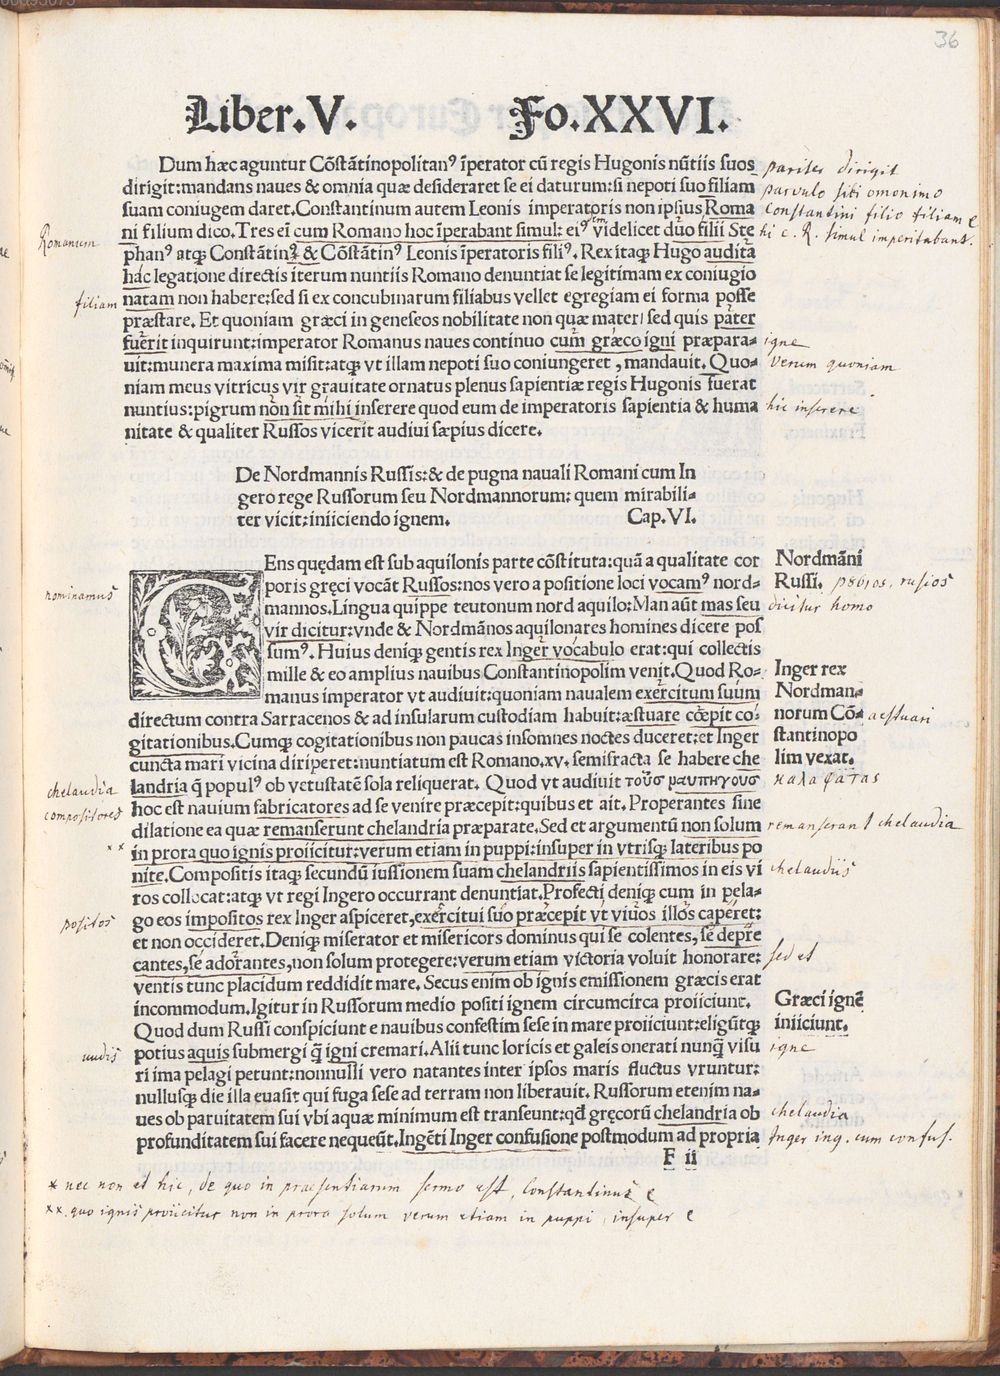 36
Liber.V. Fo.XXVI.
Dum hæc aguntur Cõstãtinopolitanꝰ ĩperator cũ regis Hugonis nũtiis suos
pariter dirigit
dirigit:mandans naues & omnia quæ desideraret se ei daturum:si nepoti suo filiam
parvulo sibi omonimo
suam coniugem daret.Constantinum autem Leonis imperatoris non ipsius Roma
Constantini filio filiam
Romanum
ni filium dico.Tres eĩ cum Romano hoc ĩperabant simul: eiꝰ videlicet duo filii Ste
hi c. R. simul imperitabant.
phanꝰ atqꝫ Constãtinꝰ & Cõstãtinꝰ Leonis ĩperatoris filiꝰ. Rex itaqꝫ Hugo audita
hac legatione directis iterum nuntiis Romano denuntiat se legitimam ex coniugio
filiam
natam non habere:sed si ex concubinarum filiabus vellet egregiam ei forma posse
præstare. Et quoniam græci in geneseos nobilitate non quæ mater/ sed quis pater
fuerit inquirunt:imperator Romanus naues continuo cum græco igni præpara-
igne
uit:munera maxima misit:atqꝫ vt illam nepoti suo coniungeret, mandauit. Quo-
verum quoniam
niam meus vitricus vir grauitate ornatus plenus sapientiæ regis Hugonis fuerat
nuntius:pigrum non sit mihi inserere quod eum de imperatoris sapientia & huma
hic inserere
nitate & qualiter Russos vicerit audiui sæpius dicere.
De Nordmannis Russis:& de pugna nauali Romani cum In
gero rege Russorum seu Nordmannorum: quem mirabili-
ter vicit:iniiciendo ignem. Cap.VI.
GEns quędam est sub aquilonis parte cõstituta:quã a qualitate cor
Nordmãni
nominamus
poris gręci vocãt Russos:nos vero a positione loci vocamꝰ nord-
Russi. ρούσιος, rusios
mannos.Lingua quippe teutonum nord aquilo:Man aũt mas seu
dicitur homo
vir dicitur:vnde & Nordmãnos aquilonares homines dicere pos
sumꝰ. Huius deniqꝫ gentis rex Inger vocabulo erat:qui collectis
mille & eo amplius nauibus Constantinopolim venit.Quod Ro-
Inger rex
manus imperator vt audiuit:quoniam naualem exercitum suum
Nordman-
directum contra Sarracenos & ad insularum custodiam habuit:æstuare cœpit co-
norum Cõ- aestuari
gitationibus.Cumqꝫ cogitationibus non paucas insomnes noctes duceret:et Inger
stantinopo
cuncta mari vicina diriperet:nuntiatum est Romano.xv. semifracta se habere che
lim vexat.
chelandia
landria q̃ populꝰ ob vetustatẽ sola reliquerat. Quod vt audiuit τοῦσ μαυπηγουσ
καλαφατας
compositores
hoc est nauium fabricatores ad se venire præcepit:quibus et ait. Properantes sine
dilatione ea quæ remanserunt chelandria præparate.Sed et argumentũ non solum
remanserant chelandia
x x
in prora quo ignis proiicitur:verum etiam in puppi:insuper in vtrisqꝫ lateribus po
nite.Compositis itaqꝫ secundũ iussionem suam chelandriis sapientissimos in eis vi
chelandiis
ros collocat:atqꝫ vt regi Ingero occurrant denuntiat.Profecti deniqꝫ cum in pela-
positos
go eos impositos rex Inger aspiceret,exercitui suo præcepit vt viuos illos caperet:
et non occideret.Deniqꝫ miserator et misericors dominus qui se colentes, se depre
cantes,se adorantes,non solum protegere:verum etiam victoria voluit honorare:
sed et
ventis tunc placidum reddidit mare. Secus enim ob ignis emissionem græcis erat
incommodum.Igitur in Russorum medio positi ignem circumcirca proiiciunt.
Græci ignẽ
Quod dum Russi conspiciunt e nauibus confestim sese in mare proiiciunt:eligũtqꝫ
iniiciunt.
undis
potius aquis submergi q̃ igni cremari.Alii tunc loricis et galeis onerati nunq̃ visu
igne
ri ima pelagi petunt:nonnulli vero natantes inter ipsos maris fluctus vruntur:
nullusqꝫ die illa euasit qui fuga sese ad terram non liberauit. Russorum etenim na-
ues ob paruitatem sui vbi aquæ minimum est transeunt:qd gręcorũ chelandria ob
chelandia
profunditatem sui facere nequeũt.Ingẽti Inger confusione postmodum ad propria
Inger ing. cum confus.
F ii
* nec non et hic, de quo in praesentiarum sermo est, Constantinus
xx. quo ignis proiicitur non in prora solum verum etiam in puppi, insuper